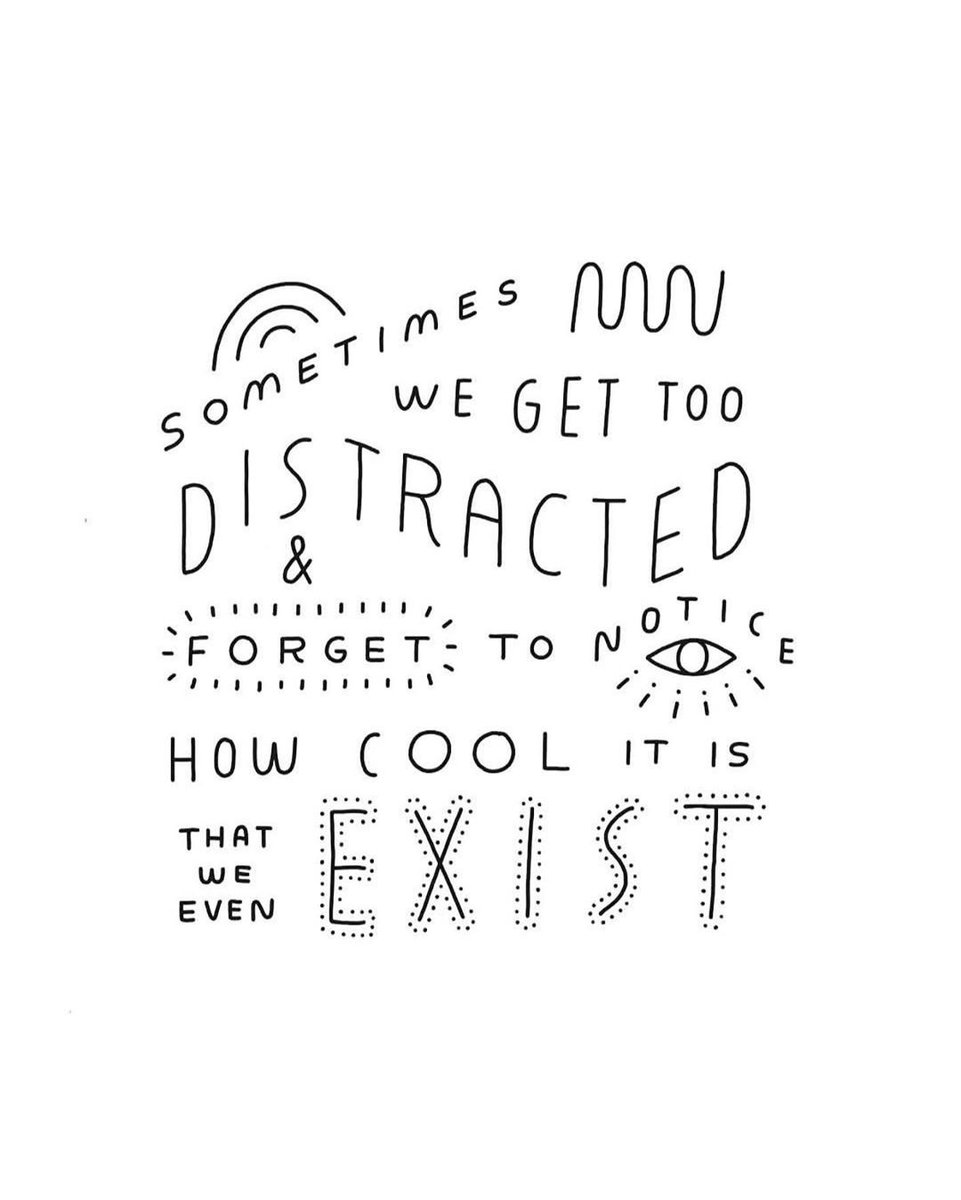 SOMETIMES
WE GET TOO
DISTRACTED
&
FORGET TO NOTICE
HOW COOL IT IS
THAT
WE
EVEN EXIST